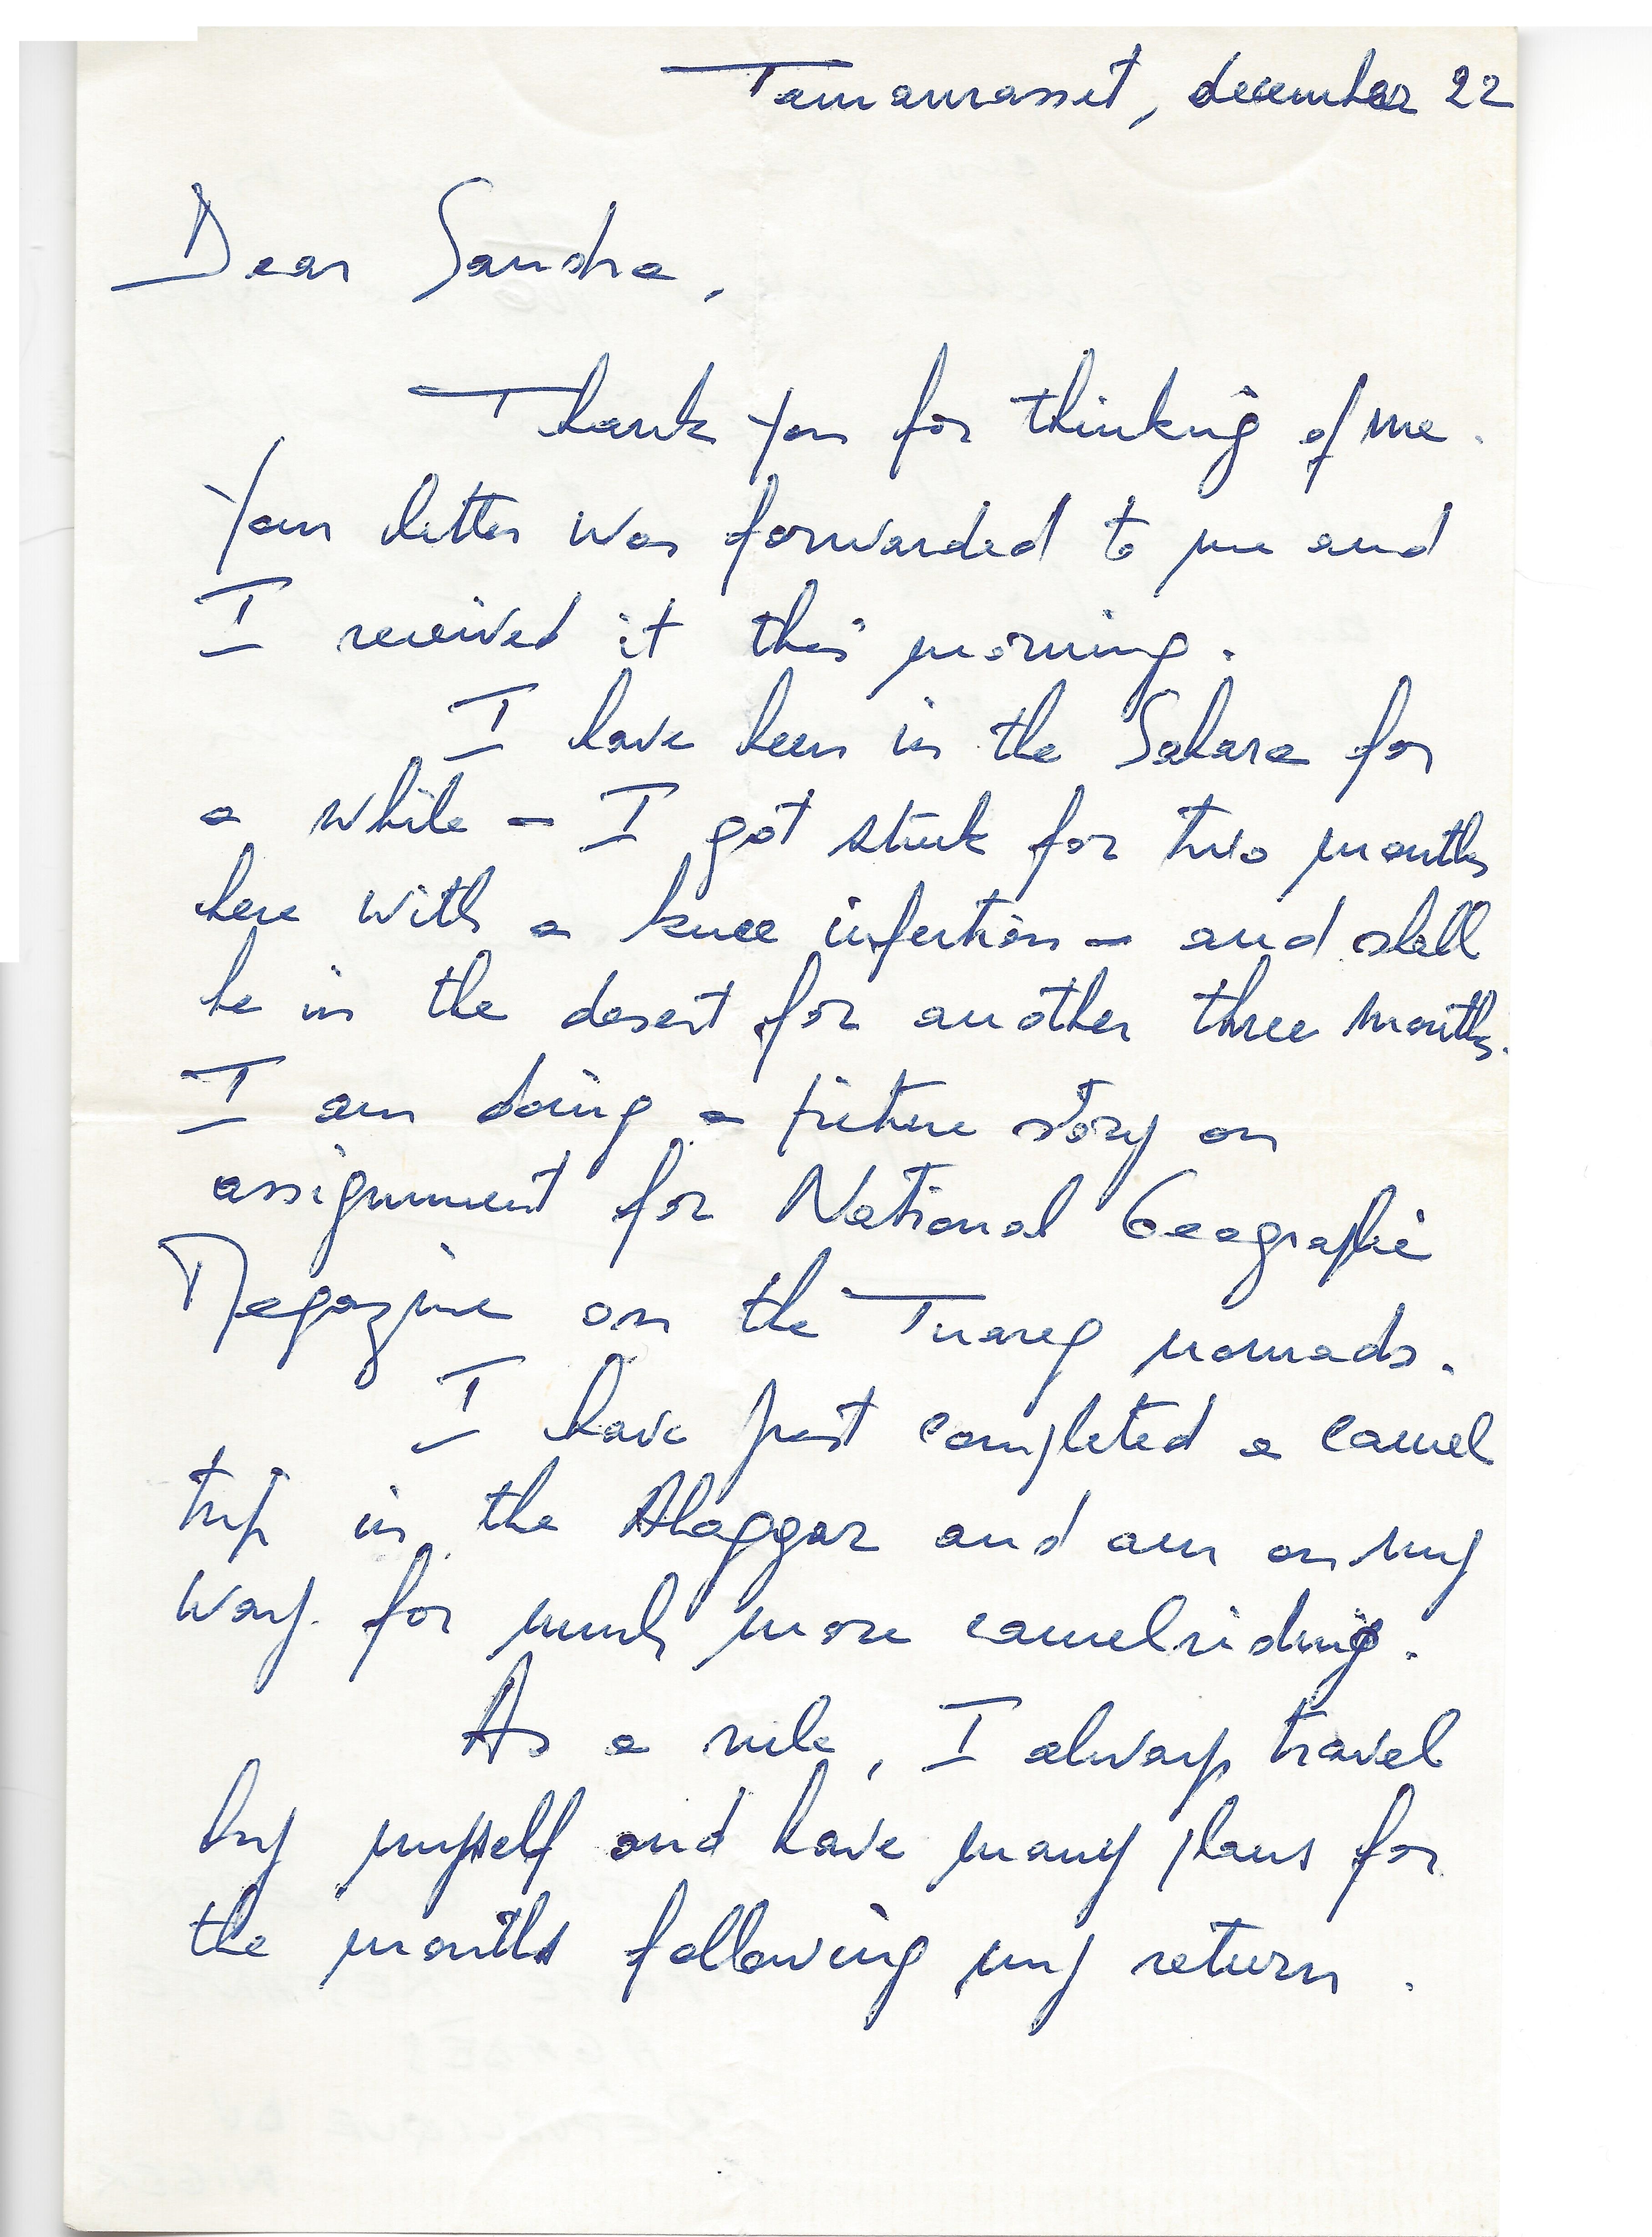 Tamanrasset, december 22
Dear Sandra,
Thank you for thinking of me.
Your letter was forwarded to me and
I received it this morning.
I have been in the Sahara for
a while - I got stuck for two months
here with a knee infection - and shall
be in the desert for another three months.
I am doing a picture story on
assignment for National Geographic
Magazine on the Tuareg nomads.
I have just completed a camel
trip in the Ahaggar and am on my
way for much more camelriding.
As a rule, I always travel
by myself and have many plans for
the months following my return.